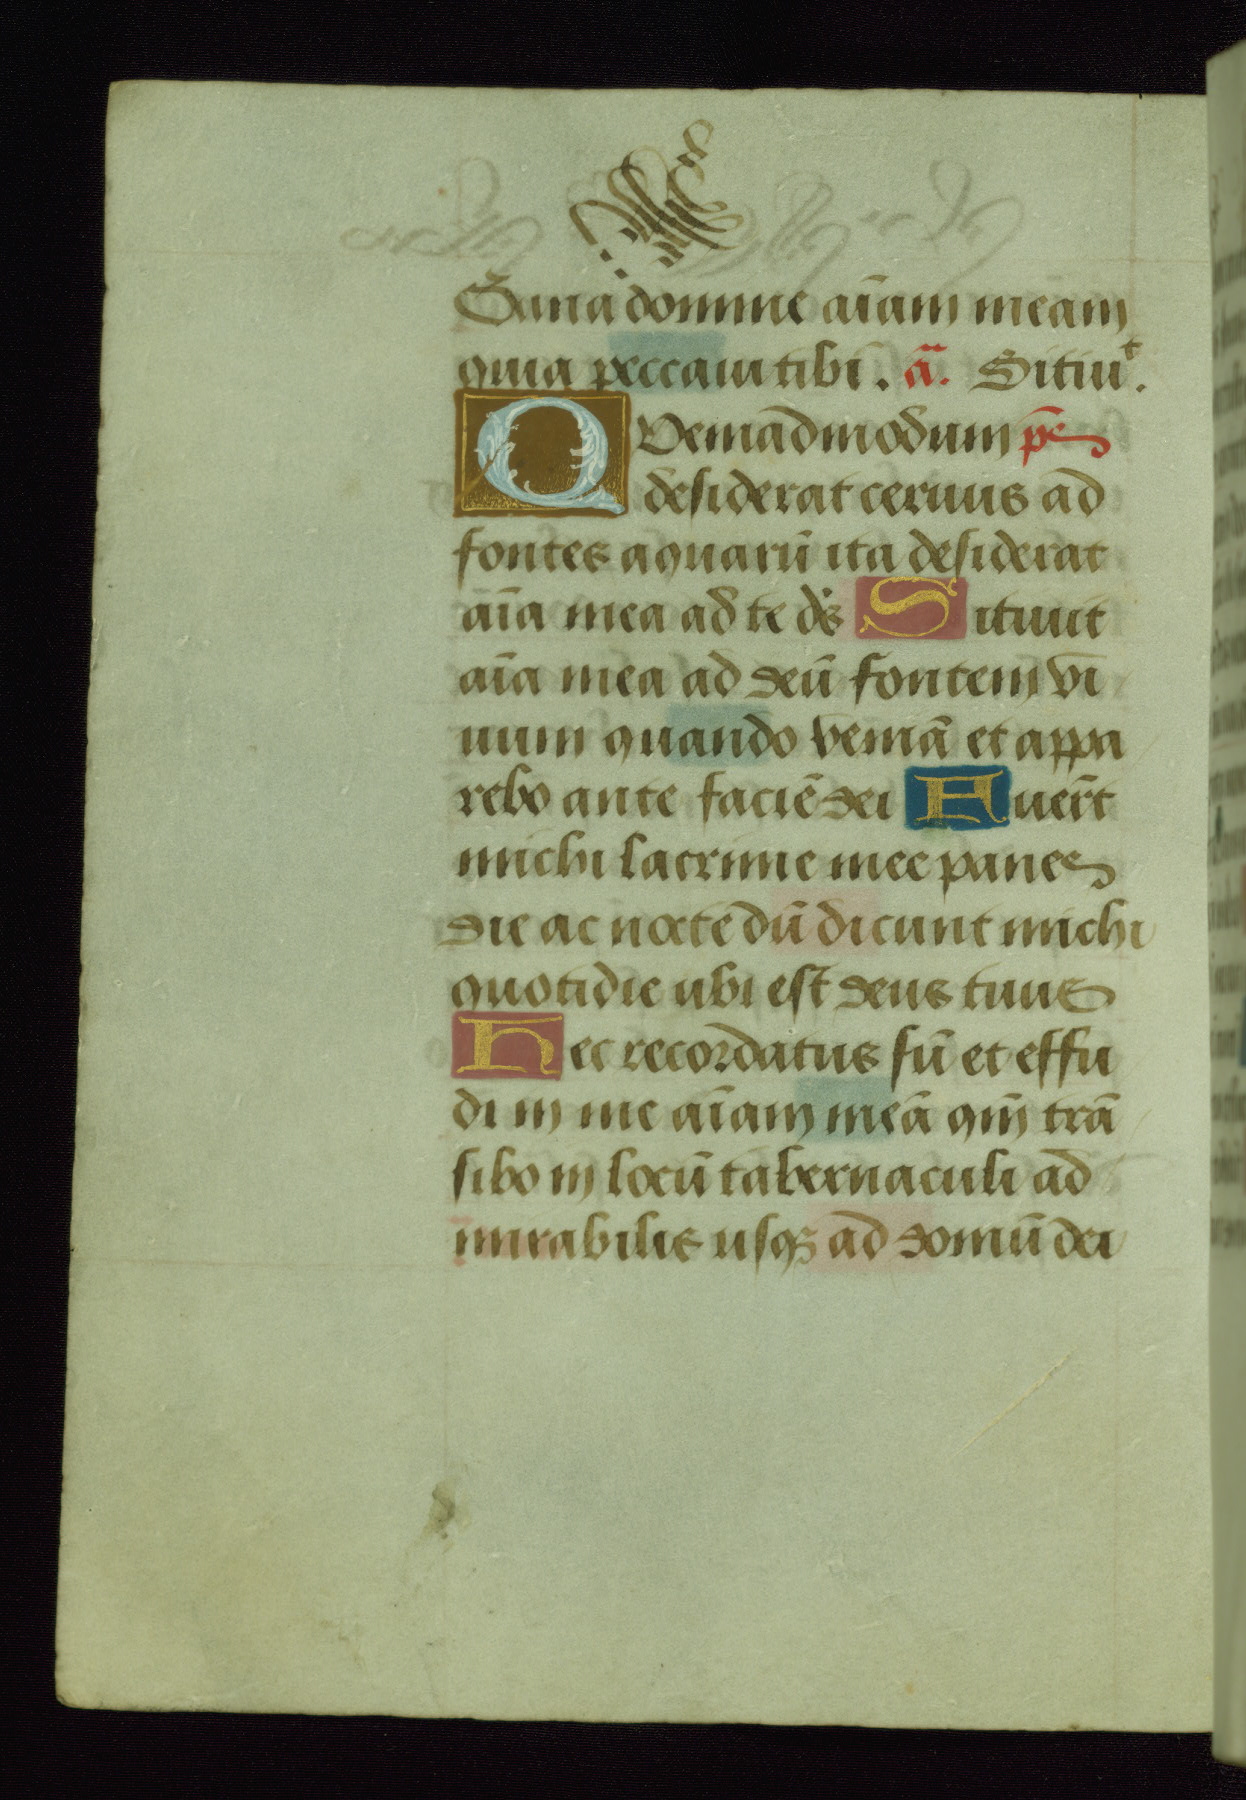 Sana domine aīam meam
quia peccaui tibi . ā. Sitiuᵗ.
QVemadmodum pẽ
desiderat ceruus ad
fontes aquarū ita desiderat
aīa mea ad te ds̄ Sitiuit
aīa mea ad deū fontem vi
uum quando veniā et appa
rebo ante faciē dei Fuer̄t
michi lacrime mee panes
die ac nocte dū dicunt michi
quotidie ubi est deus tuus
Hec recordatus sū et effu
di in me aīam meā qm̄ trā
sibo in locū tabernaculi ad
mirabilis usqꝫ ad domū dei